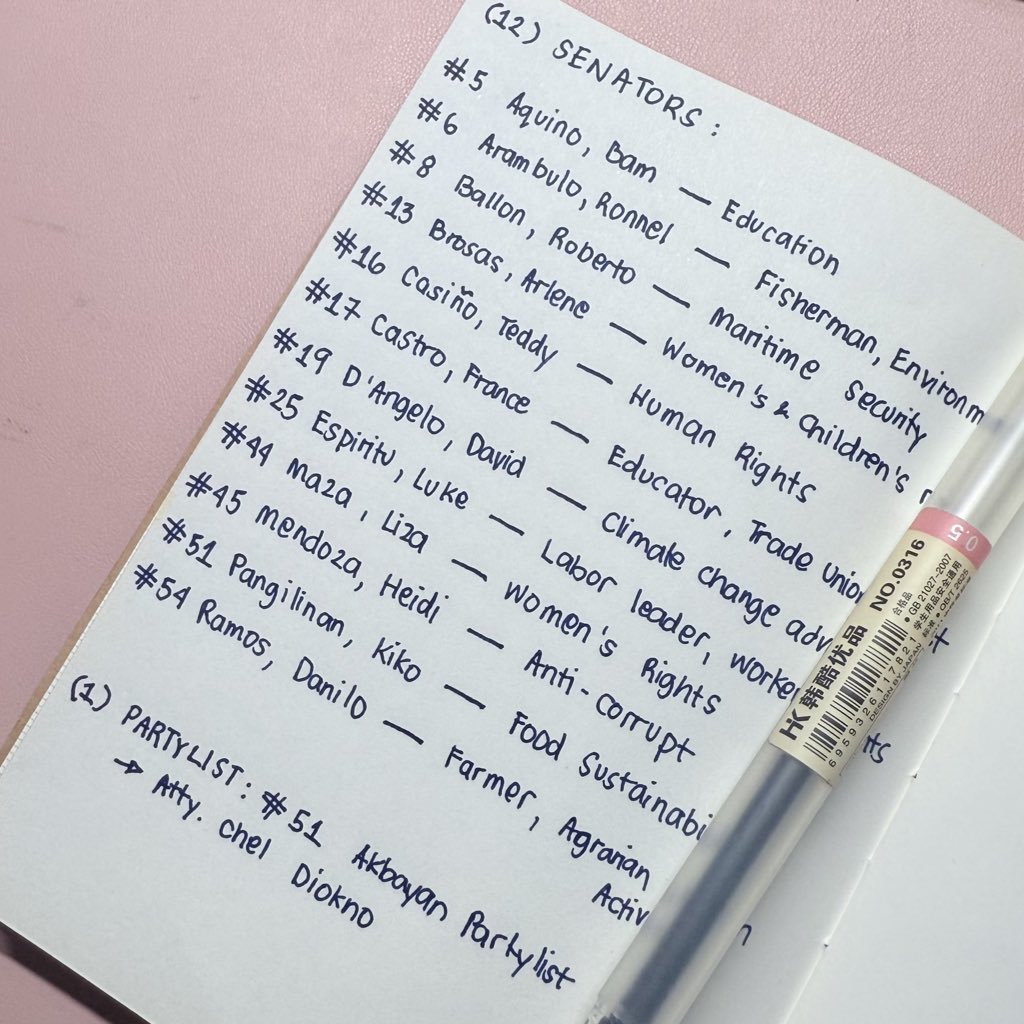 (12) SENATORS :
#5 Aquino, Bam — Education
#6 Arambulo, Ronnel — Fisherman, Environm
#8 Ballon, Roberto — Maritime Security
#13 Brosas, Arlene — Women's & Children's
#16 Casiño, Teddy — Human Rights
#17 Castro, France — Educator, Trade Union
#19 D'Angelo, David — Climate change adv
#25 Espiritu, Luke — Labor leader, Worke
#44 Maza, Liza — Women's Rights
#45 Mendoza, Heidi — Anti-corrupt
#51 Pangilinan, Kiko — Food Sustainabi
#54 Ramos, Danilo — Farmer, Agrarian
Activ
(1) PARTYLIST: #51 Akbayan Partylist
→ Atty. Chel Diokno
0.5
HK 韩酷优品 NO.0316
合格品
• GB 21027-2007
学生用品安全通用
6959326117821
DESIGN BY JAPAN